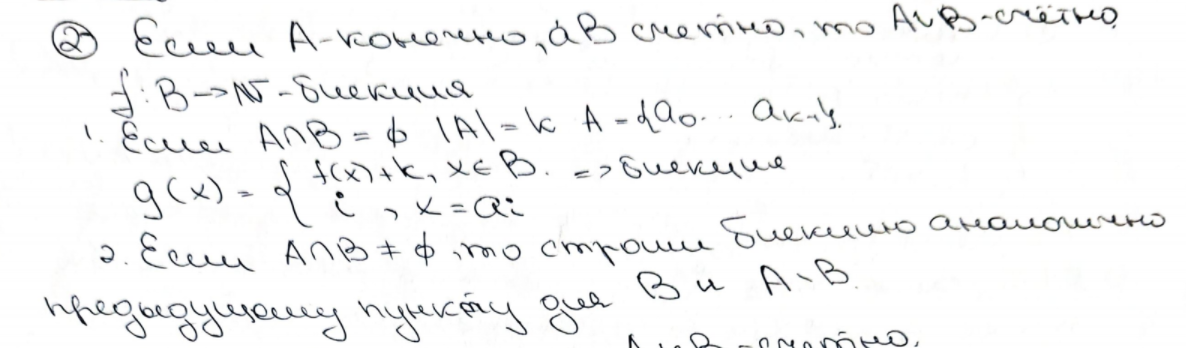 ② Если A-конечно, а B счетно, то A∪B-счётно
f: B→ℕ -биекция
1. Если A∩B = ϕ |A| = k A = {a₀... aₖ₋₁}.
g(x) = { f(x)+k, x∈B. => биекция
i, x = aᵢ
2. Если A∩B ≠ ϕ, то строим биекцию аналогично
предыдущему пункту для B и A∖B.
A∪B -счетно.